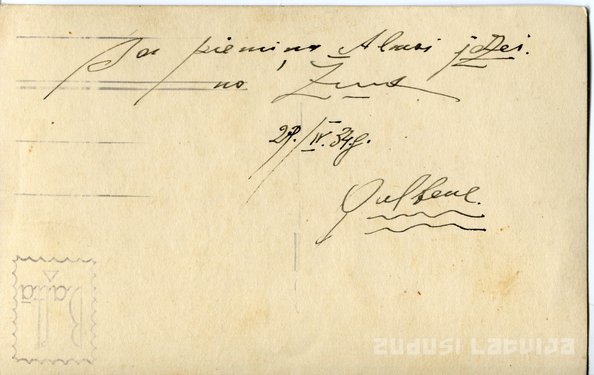 Par piemiņu Almai
no
29/IV. 34g.
Gulbenē.
Balta
zudusi Latvija